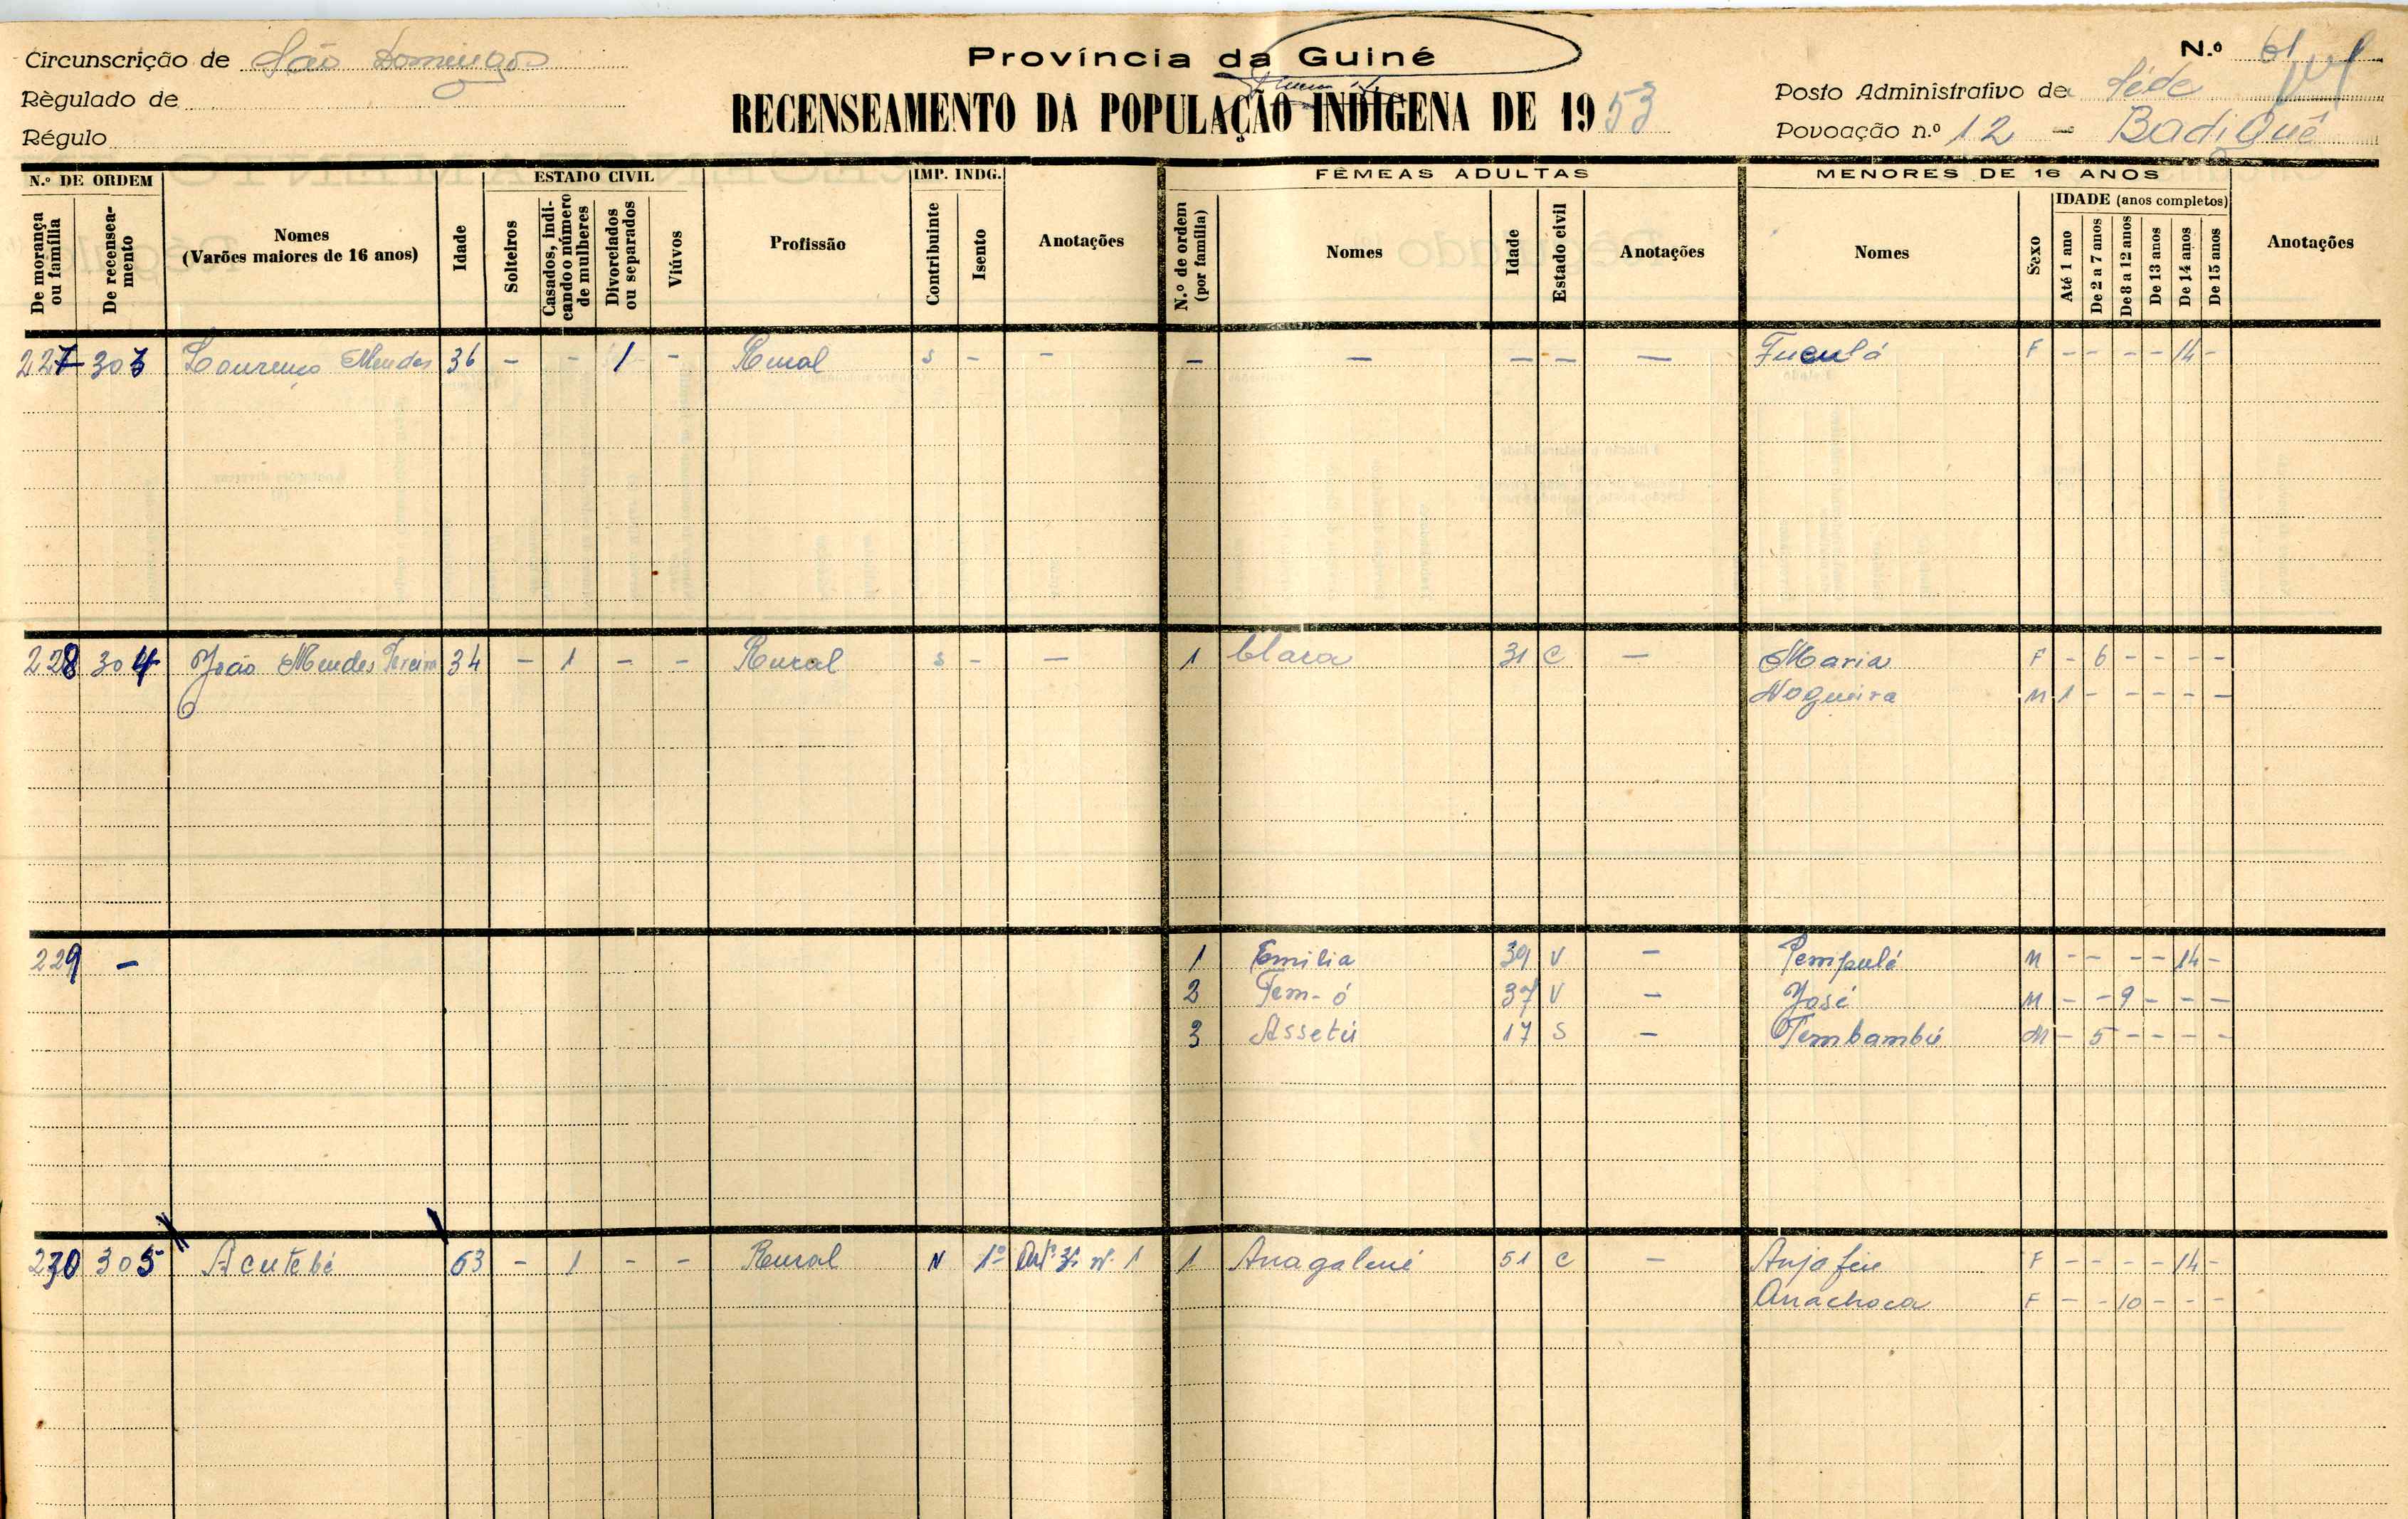 Circunscrição de São Domingos
Règulado de
Régulo
Província da Guiné
RECENSEAMENTO DA POPULAÇÃO INDÍGENA DE 1953
N.º 61
Posto Administrativo de Séde
Povoação n.º 12 - Badiquê
N.º DE ORDEM
De morança ou família
De recenseamento
Nomes
(Varões maiores de 16 anos)
Idade
ESTADO CIVIL
Solteiros
Casados, indicando o número de mulheres
Divorciados ou separados
Viúvos
Profissão
IMP. INDG.
Contribuinte
Isento
Anotações
FÊMEAS ADULTAS
N.º de ordem (por família)
Nomes
Idade
Estado civil
Anotações
MENORES DE 16 ANOS
Nomes
Sexo
IDADE (anos completos)
Até 1 ano
De 2 a 7 anos
De 8 a 12 anos
De 13 anos
De 14 anos
De 15 anos
Anotações
227 303 Lourenço Mendes 36 - - 1 - Rural S - - - - - - - Fuculá F - - - - 14 -
228 304 João Mendes Pereira 34 - 1 - - Rural S - - 1 Clara 31 C - Maria F - 6 - - - -
Nogueira M 1 - - - - -
229 - 1 Emilia 39 V - Pempulé M - - - - 14 -
2 Tem-ó 37 V - José M - - 9 - - -
3 Assetú 17 S - Tembambú M - 5 - - - -
230 305 Acutebé 63 - 1 - - Rural N 1º 1 1 Anagalené 51 C - Anjafen F - - - - 14 -
Anachoca F - - 10 - - -